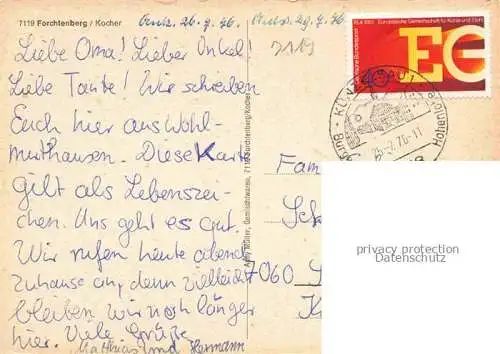 7119 Forchtenberg / Kocher
26.7.76. 29.7.76
7119
Liebe Oma! Lieber Onkel!
Liebe Tante! Wir schreiben
Euch hier aus Wohl-
muthausen. Diese Karte
gilt als Lebenszei-
chen. Uns geht es gut.
Wir rufen heute abend
zuhause an, denn vielleicht
bleiben wir noch länger
hier. Viele Grüße
Matthias und Hermann
Anny Müller, Gemischtwaren, 7119 Forchtenberg/Kocher
Deutsche Bundespost
Europäische Gemeinschaft für Kohle und Stahl
EG
KÜNZELSAU 1
Hohenlohe
Fam
7060
privacy protection
Datenschutz